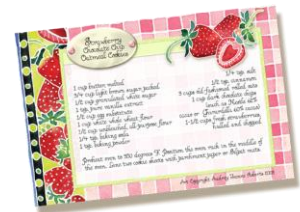 Strawberry
Chocolate Chip
Oatmeal Cookies
1 cup butter melted
3/4 cup light brown sugar packed
1/2 cup granulated white sugar
1 tsp. pure vanilla extract
1/2 cup egg substitute
1 cup white whole wheat flour
1/2 cup unbleached all purpose flour
1/4 tsp. baking soda
1 tsp. baking powder
1/4 tsp. salt
1/2 tsp. cinnamon
3 cups old-fashioned rolled oats
1 cup dark chocolate chips
1-1/2 cups fresh strawberries
hulled and chopped
Preheat oven to 350 degrees F. Position the oven rack in the middle of
the oven. Line two cookie sheets with parchment paper or